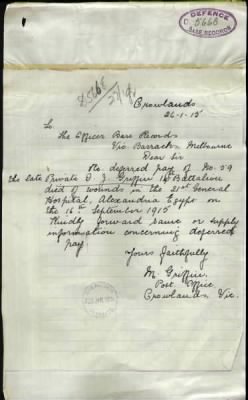 DEFENCE
5668
BASE RECORDS
Crowlands
26-1-15
To
The Officer Base Records
Vic Barracks Melbourne
Dear Sir
Re. deferred pay of No. 59
the late Private T. J. Griffin 14 Battalion
died of wounds in the 21st General
Hospital, Alexandria Egypt on
the 16th September 1915
Kindly forward same or supply
information concerning deferred
pay
Yours faithfully
M. Griffin
Post Office
Crowlands Vic.